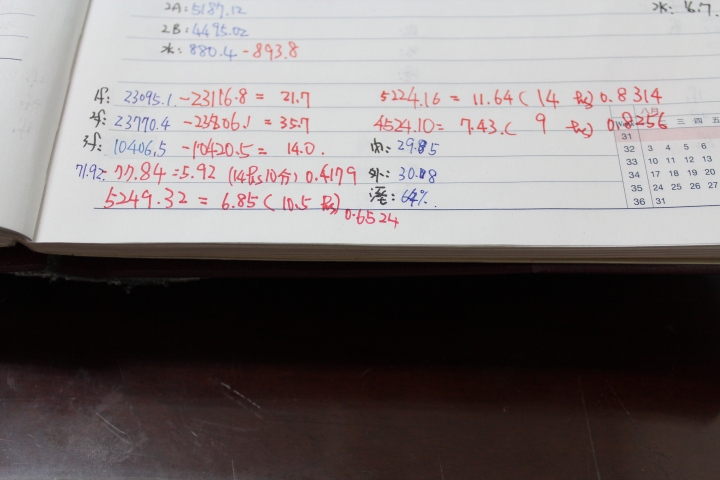 2A: 5187.12
2B: 4495.02
水: 880.4 - 893.8
水: 16.7
1f: 23095.1 - 23116.8 = 21.7
2f: 23770.4 - 23806.1 = 35.7
3f: 10406.5 - 10420.5 = 14.0
71.92 77.84 = 5.92 (14 hs 10分) 0.4179
5249.32 = 6.85 (10.5 hs) 0.6524
5224.16 = 11.64 (14 hs) 0.8314
4524.10 = 7.43 (9 hs) 0.8256
内: 29.85
外: 30.18
湿: 64%
八月
三 四 五
31
32 3 4 5 6
33 10 11 12 13
34 17 18 19 20
35 24 25 26 27
36 31